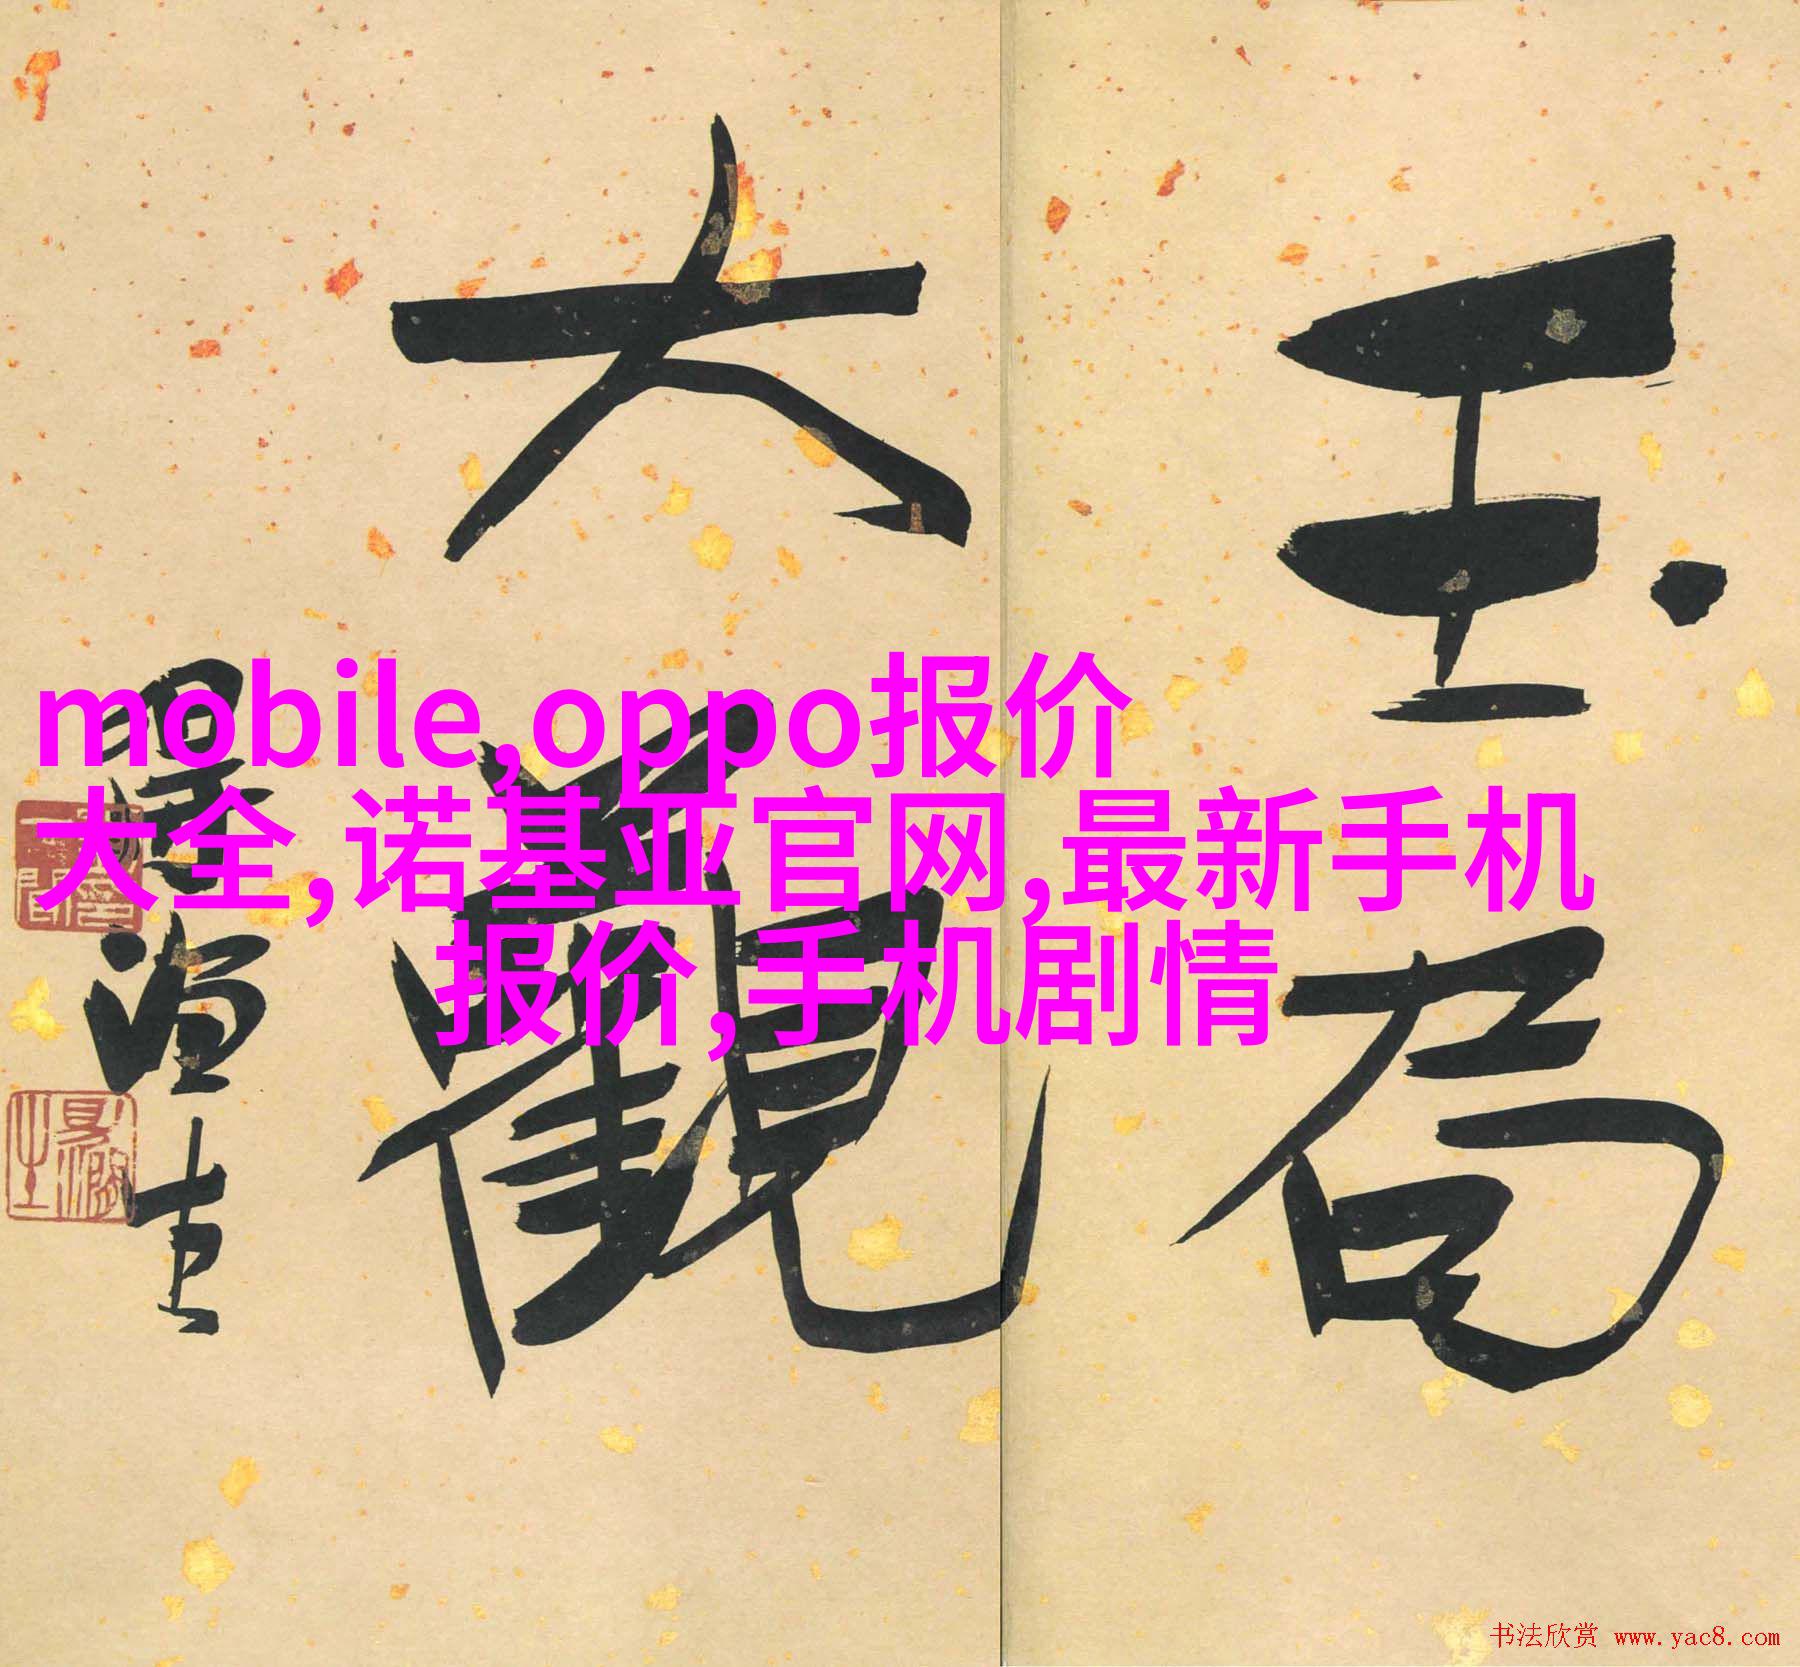 玉局
大觀
mobile,oppo报价
大全,诺基亚官网,最新手机
报价,手机剧情
书法欣赏 www.yac8.com